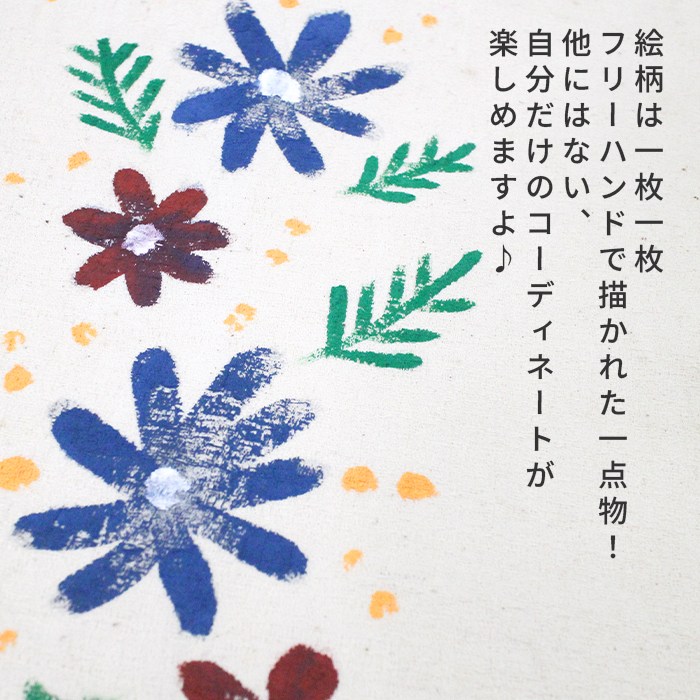 絵柄は一枚一枚
フリーハンドで描かれた一点物！
他にはない、
自分だけのコーディネートが
楽しめますよ♪